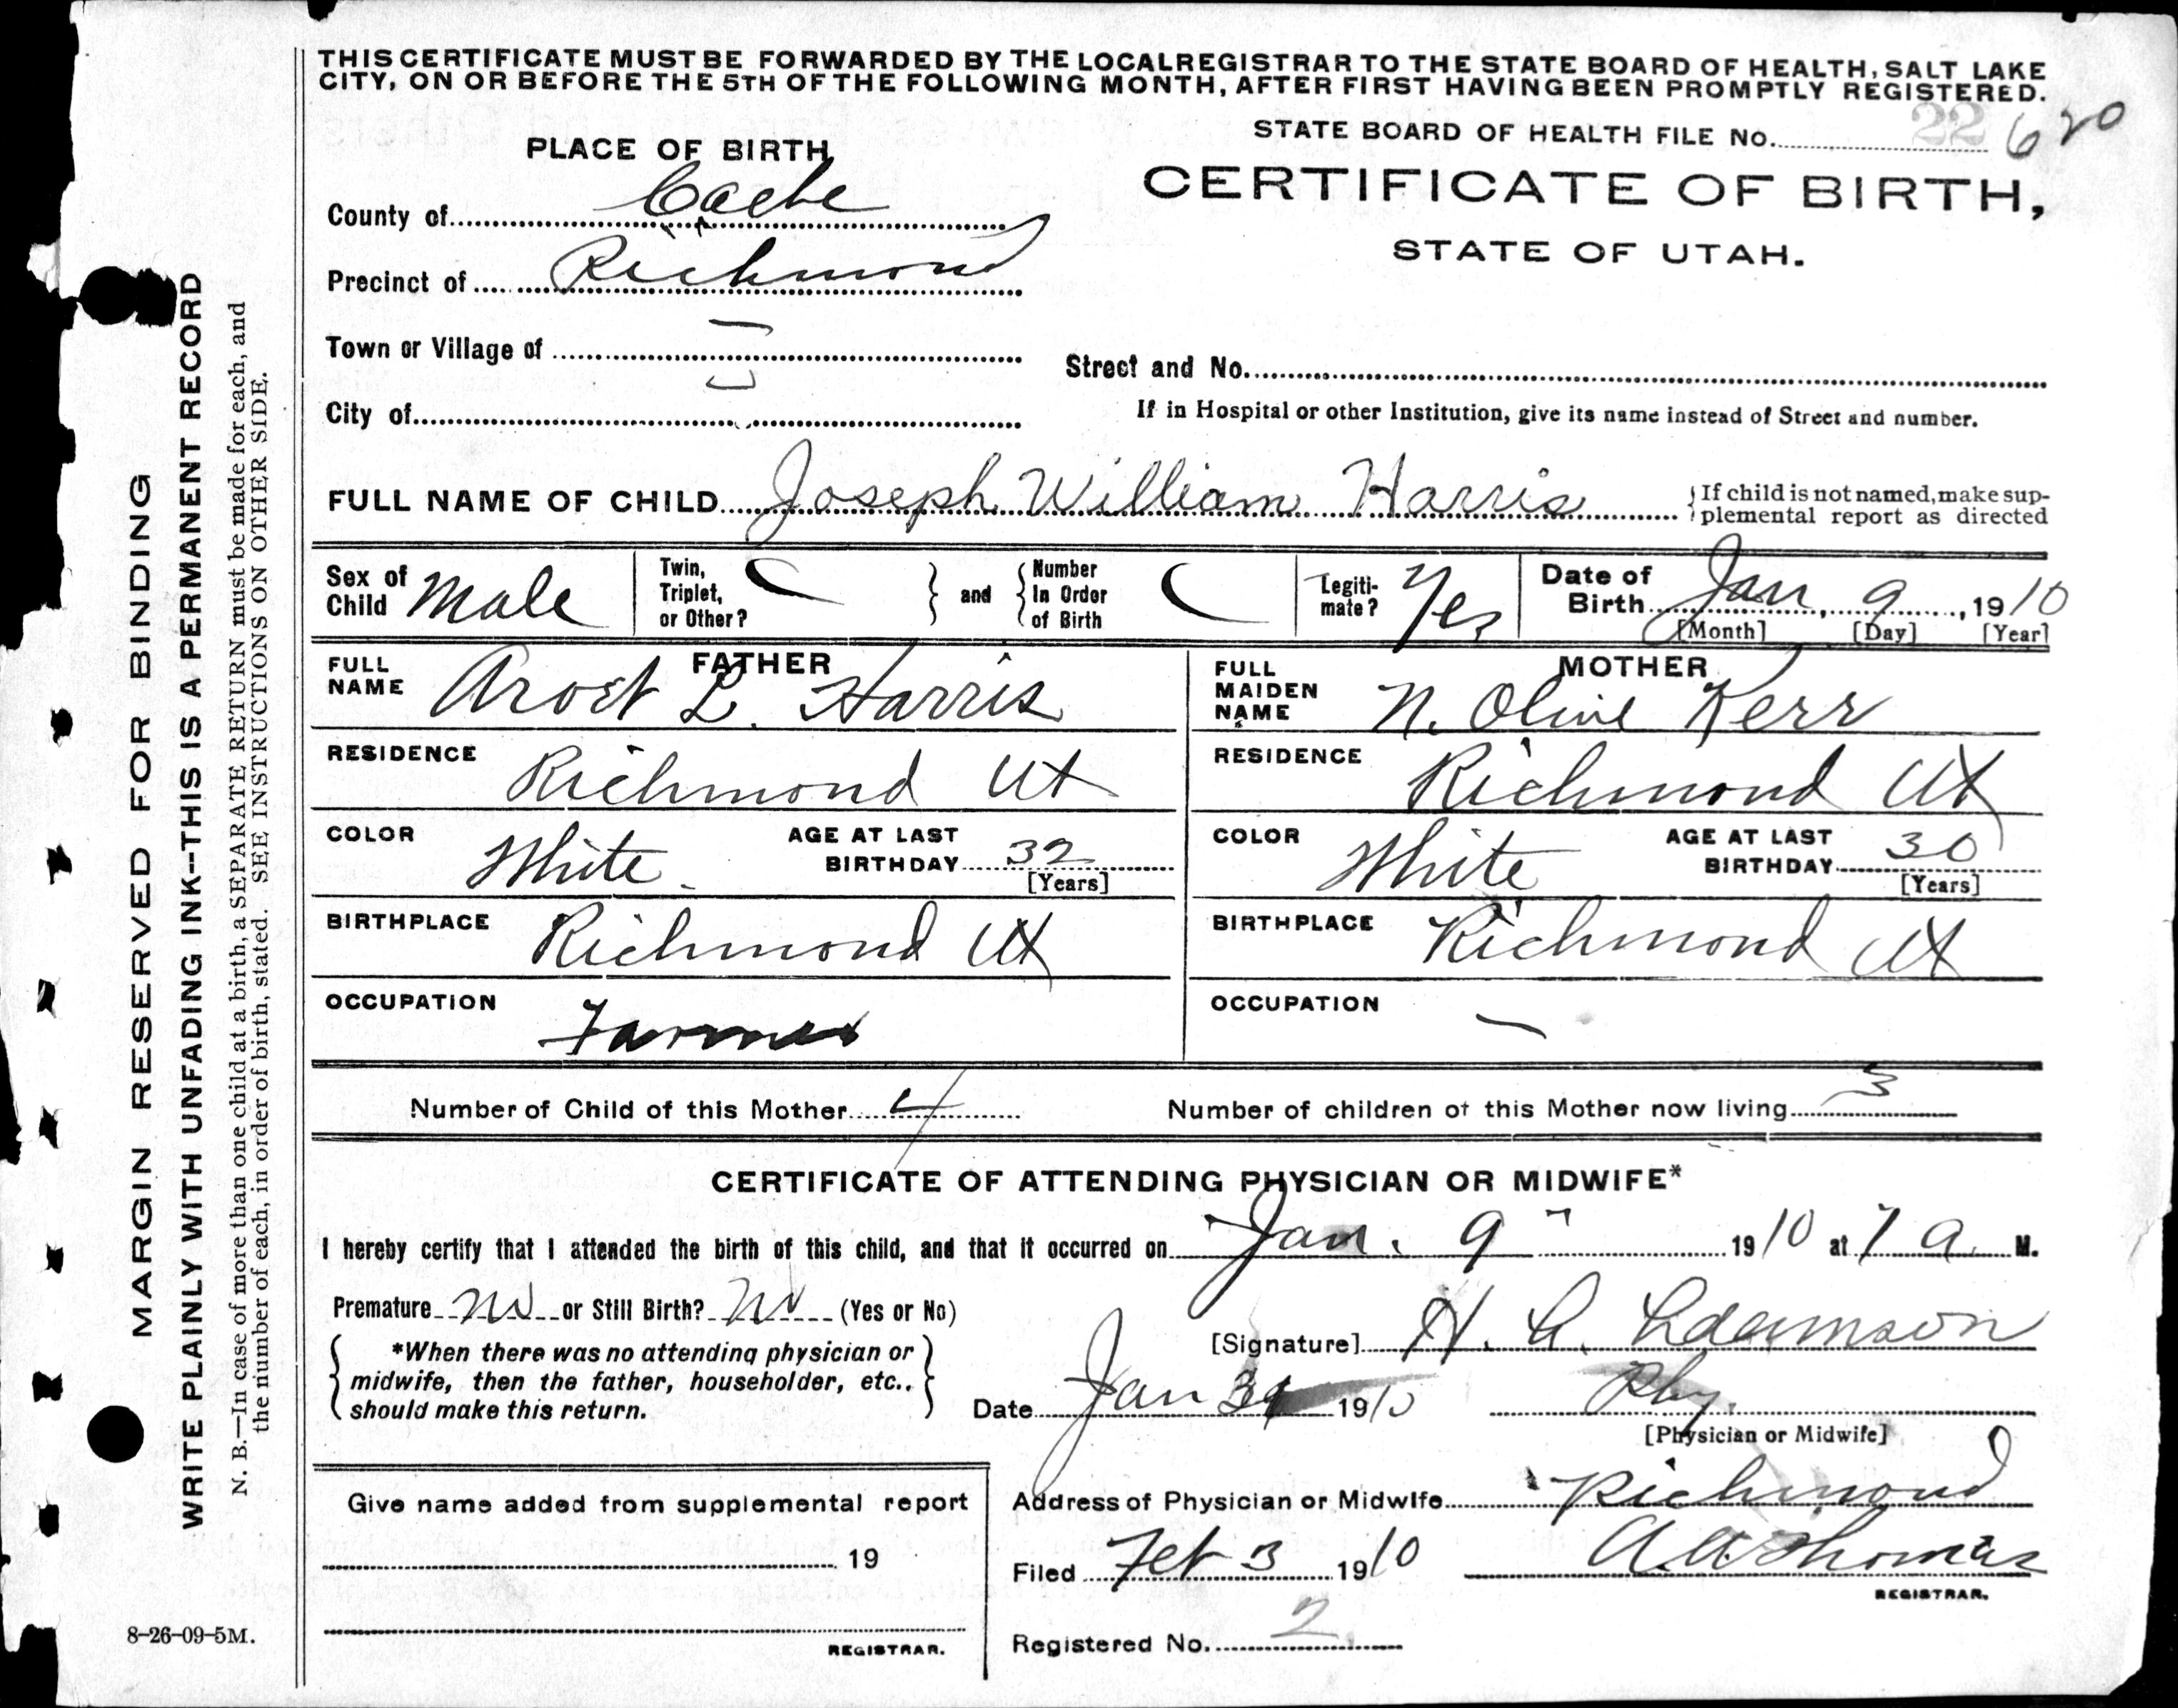 THIS CERTIFICATE MUST BE FORWARDED BY THE LOCAL REGISTRAR TO THE STATE BOARD OF HEALTH, SALT LAKE
CITY, ON OR BEFORE THE 5TH OF THE FOLLOWING MONTH, AFTER FIRST HAVING BEEN PROMPTLY REGISTERED.
STATE BOARD OF HEALTH FILE No. 22 620
PLACE OF BIRTH
CERTIFICATE OF BIRTH,
STATE OF UTAH.
County of Cache
Precinct of Richmond
Town or Village of
Street and No.
City of
If in Hospital or other Institution, give its name instead of Street and number.
FULL NAME OF CHILD Joseph William Harris { If child is not named, make sup-
plemental report as directed
Sex of Child Male
Twin, Triplet, or Other? } and { Number In Order of Birth
Legiti-mate? Yes
Date of Birth Jan, 9, 1910
[Month] [Day] [Year]
FATHER
FULL NAME L. Harris
MOTHER
FULL MAIDEN NAME N. Olive Kerr
RESIDENCE Richmond Ut
RESIDENCE Richmond Ut
COLOR White. AGE AT LAST BIRTHDAY 32 [Years]
COLOR White AGE AT LAST BIRTHDAY 30 [Years]
BIRTHPLACE Richmond Ut
BIRTHPLACE Richmond Ut
OCCUPATION Farmer
OCCUPATION —
Number of Child of this Mother 4 Number of children of this Mother now living 3
CERTIFICATE OF ATTENDING PHYSICIAN OR MIDWIFE*
I hereby certify that I attended the birth of this child, and that it occurred on Jan. 9 1910 at 7 a M.
Premature No or Still Birth? No (Yes or No)
[Signature] H. Adamson
{ *When there was no attending physician or
midwife, then the father, householder, etc.,
should make this return. }
Date Jan 31 1910 Phy.
[Physician or Midwife]
Give name added from supplemental report
19
REGISTRAR.
Address of Physician or Midwife Richmond
Filed Feb 3 1910 A.A. Thomas
REGISTRAR.
Registered No. 2
8-26-09-5M.
MARGIN RESERVED FOR BINDING
WRITE PLAINLY WITH UNFADING INK--THIS IS A PERMANENT RECORD
N. B.—In case of more than one child at a birth, a SEPARATE RETURN must be made for each, and
the number of each, in order of birth, stated. SEE INSTRUCTIONS ON OTHER SIDE.